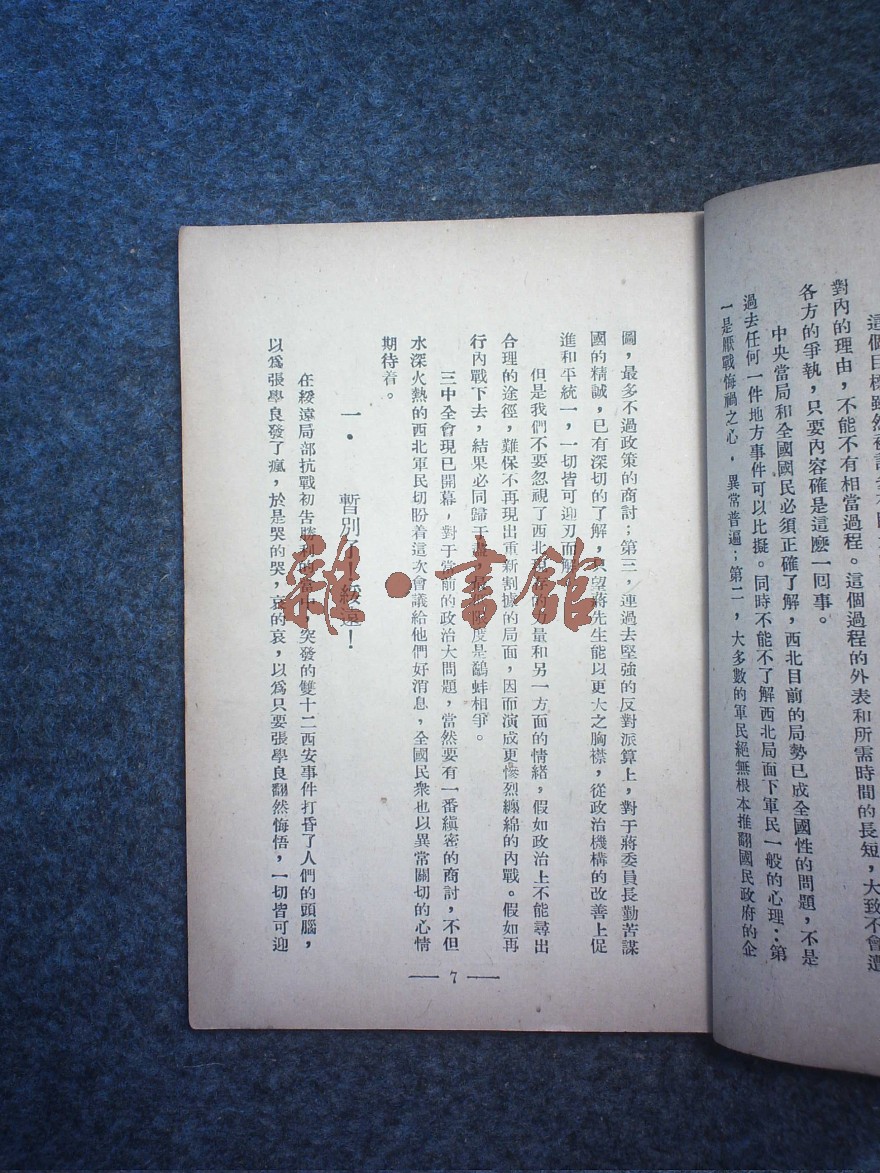 這個目標雖然
對內的理由，不能不有相當過程。這個過程的外表和所需時間的長短，大致不會遭
各方的爭執，只要內容確是這麼一回事。
中央當局和全國國民必須正確了解，西北目前的局勢已成全國性的問題，不是
過去任何一件地方事件可以比擬。同時不能不了解西北局面下軍民一般的心理：第
一是厭戰悔禍之心，異常普遍；第二，大多數的軍民絕無根本推翻國民政府的企
圖，最多不過政策的商討；第三，連過去堅強的反對派算上，對于蔣委員長勤苦謀
國的精誠，已有深切的了解，只望蔣先生能以更大之胸襟，從政治機構的改善上促
進和平統一，一切皆可迎刃而解
但是我們不要忽視了西北 的力量和另一方面的情緒，假如政治上不能尋出
合理的途徑，難保不再現出重新割據的局面，因而演成更慘烈纏綿的內戰。假如再
行內戰下去，結果必同歸于盡， 限度是鷸蚌相爭。
三中全會現已開幕，對于當前的政治大問題，當然要有一番縝密的商討，不但
水深火熱的西北軍民切盼着這次會議給他們好消息，全國民衆也以異常關切的心情
期待着。
一． 暫別了！綏遠！
在綏遠局部抗戰初告勝利的當中，突發的雙十二西安事件打昏了人們的頭腦，
以爲張學良發了瘋，於是哭的哭，哀的哀，以爲只要張學良翻然悔悟，一切皆可迎
— 7 —
雜·書館